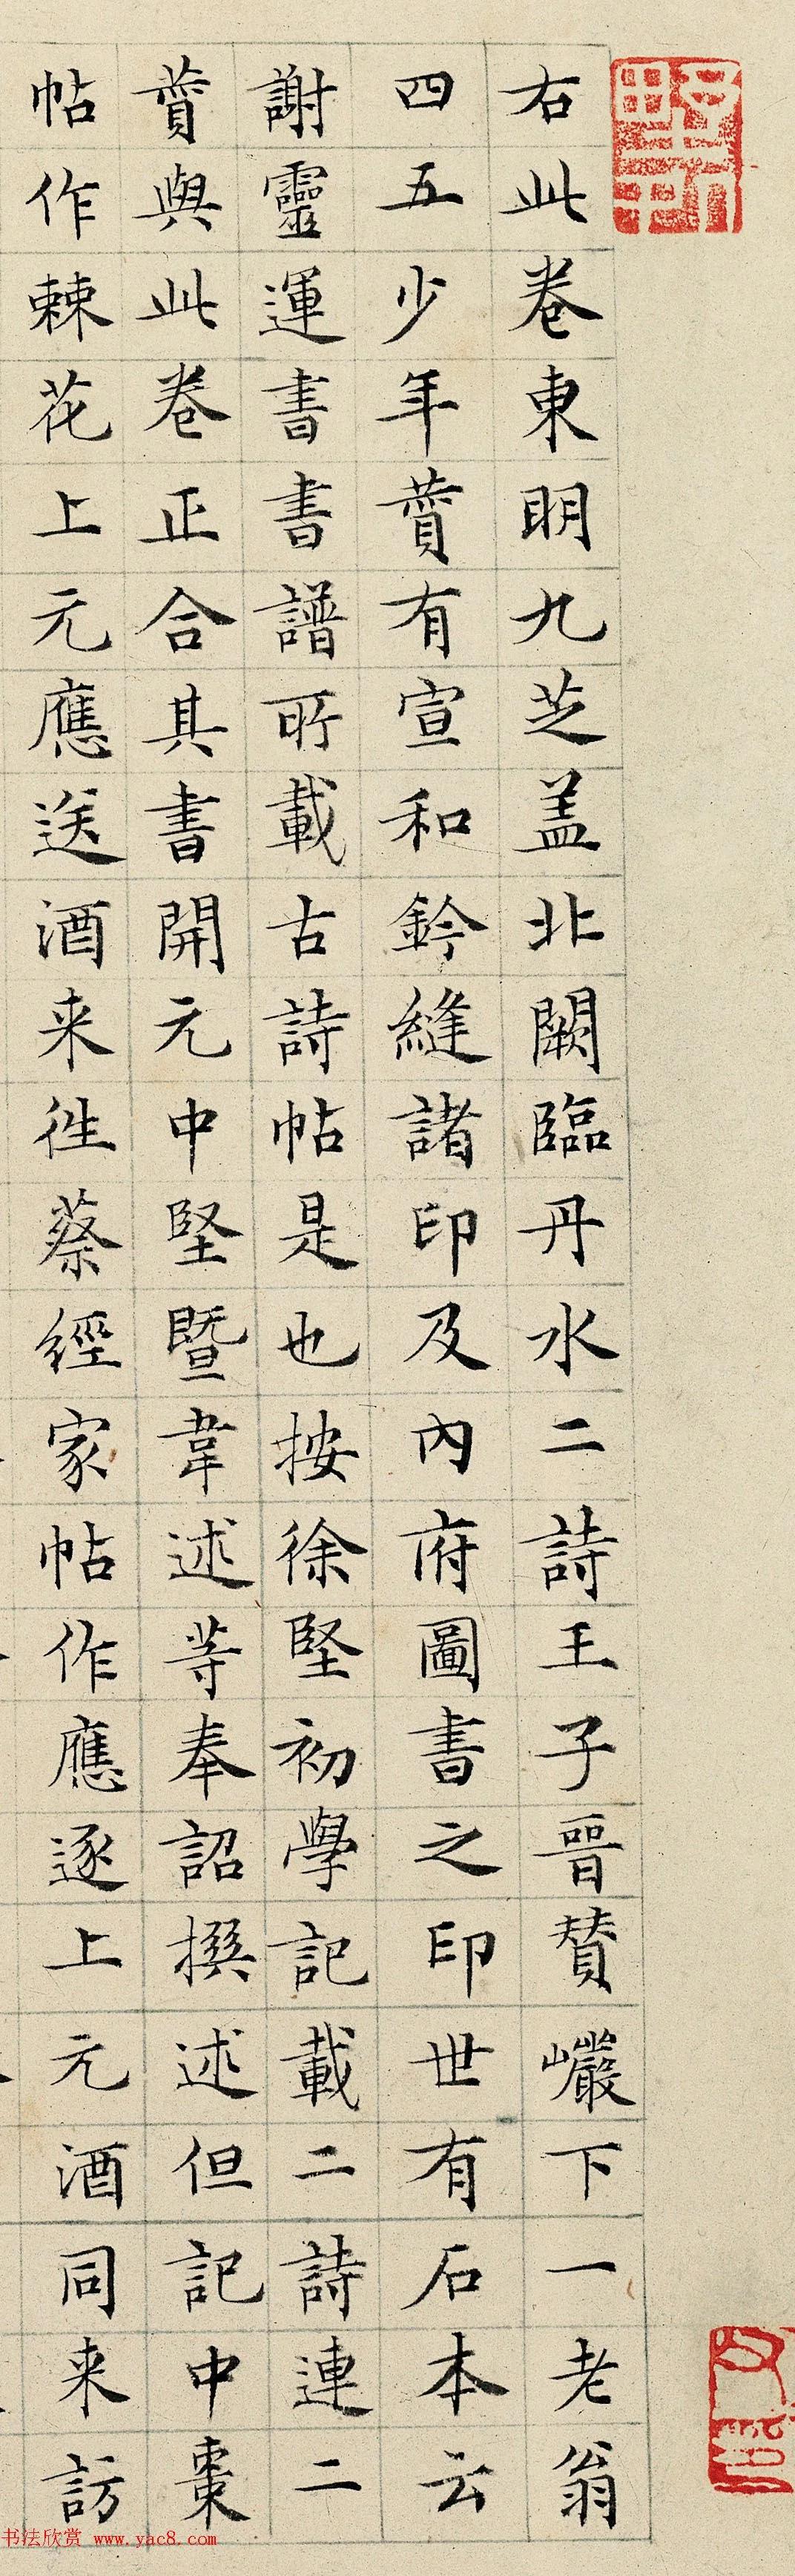 右此卷東明九芝盖北闕臨丹水二詩王子晉賛巖下一老翁
四五少年賛有宣和鈐縫諸印及内府圖書之印世有石本云
謝靈運書書譜所載古詩帖是也按徐堅初學記載二詩連二
賛與此卷正合其書開元中堅暨韋述等奉詔撰述但記中棗
帖作棘花上元應送酒来往蔡經家帖作應逐上元酒同来訪
书法欣赏 www.yac8.com